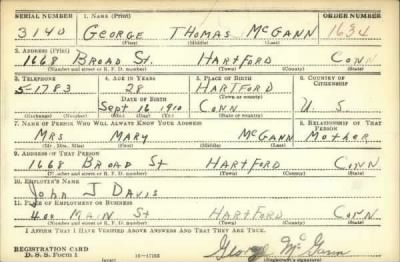 SERIAL NUMBER 1. NAME (Print) ORDER NUMBER
3140 GEORGE THOMAS McGANN 1634
(First) (Middle) (Last)
2. ADDRESS (Print)
1668 BROAD ST. HARTFORD CONN
(Number and street or R. F. D. number) (Town) (County) (State)
3. TELEPHONE 4. AGE IN YEARS 5. PLACE OF BIRTH 6. COUNTRY OF CITIZENSHIP
5-1783 28 HARTFORD
DATE OF BIRTH (Town or county)
Sept 16 1910 CONN U. S.
(Exchange) (Number) (Mo.) (Day) (Yr.) (State or country)
7. NAME OF PERSON WHO WILL ALWAYS KNOW YOUR ADDRESS 8. RELATIONSHIP OF THAT PERSON
MRS MARY McGANN MOTHER
(Mr., Mrs., Miss) (First) (Middle) (Last)
9. ADDRESS OF THAT PERSON
1668 BROAD ST HARTFORD CONN
(Number and street or R. F. D. number) (Town) (County) (State)
10. EMPLOYER'S NAME
JOHN J DAVIS
11. PLACE OF EMPLOYMENT OR BUSINESS
400 MAIN ST HARTFORD CONN
(Number and street or R. F. D. number) (Town) (County) (State)
I AFFIRM THAT I HAVE VERIFIED ABOVE ANSWERS AND THAT THEY ARE TRUE.
REGISTRATION CARD
D. S. S. Form 1 George McGann
(Registrant's signature)